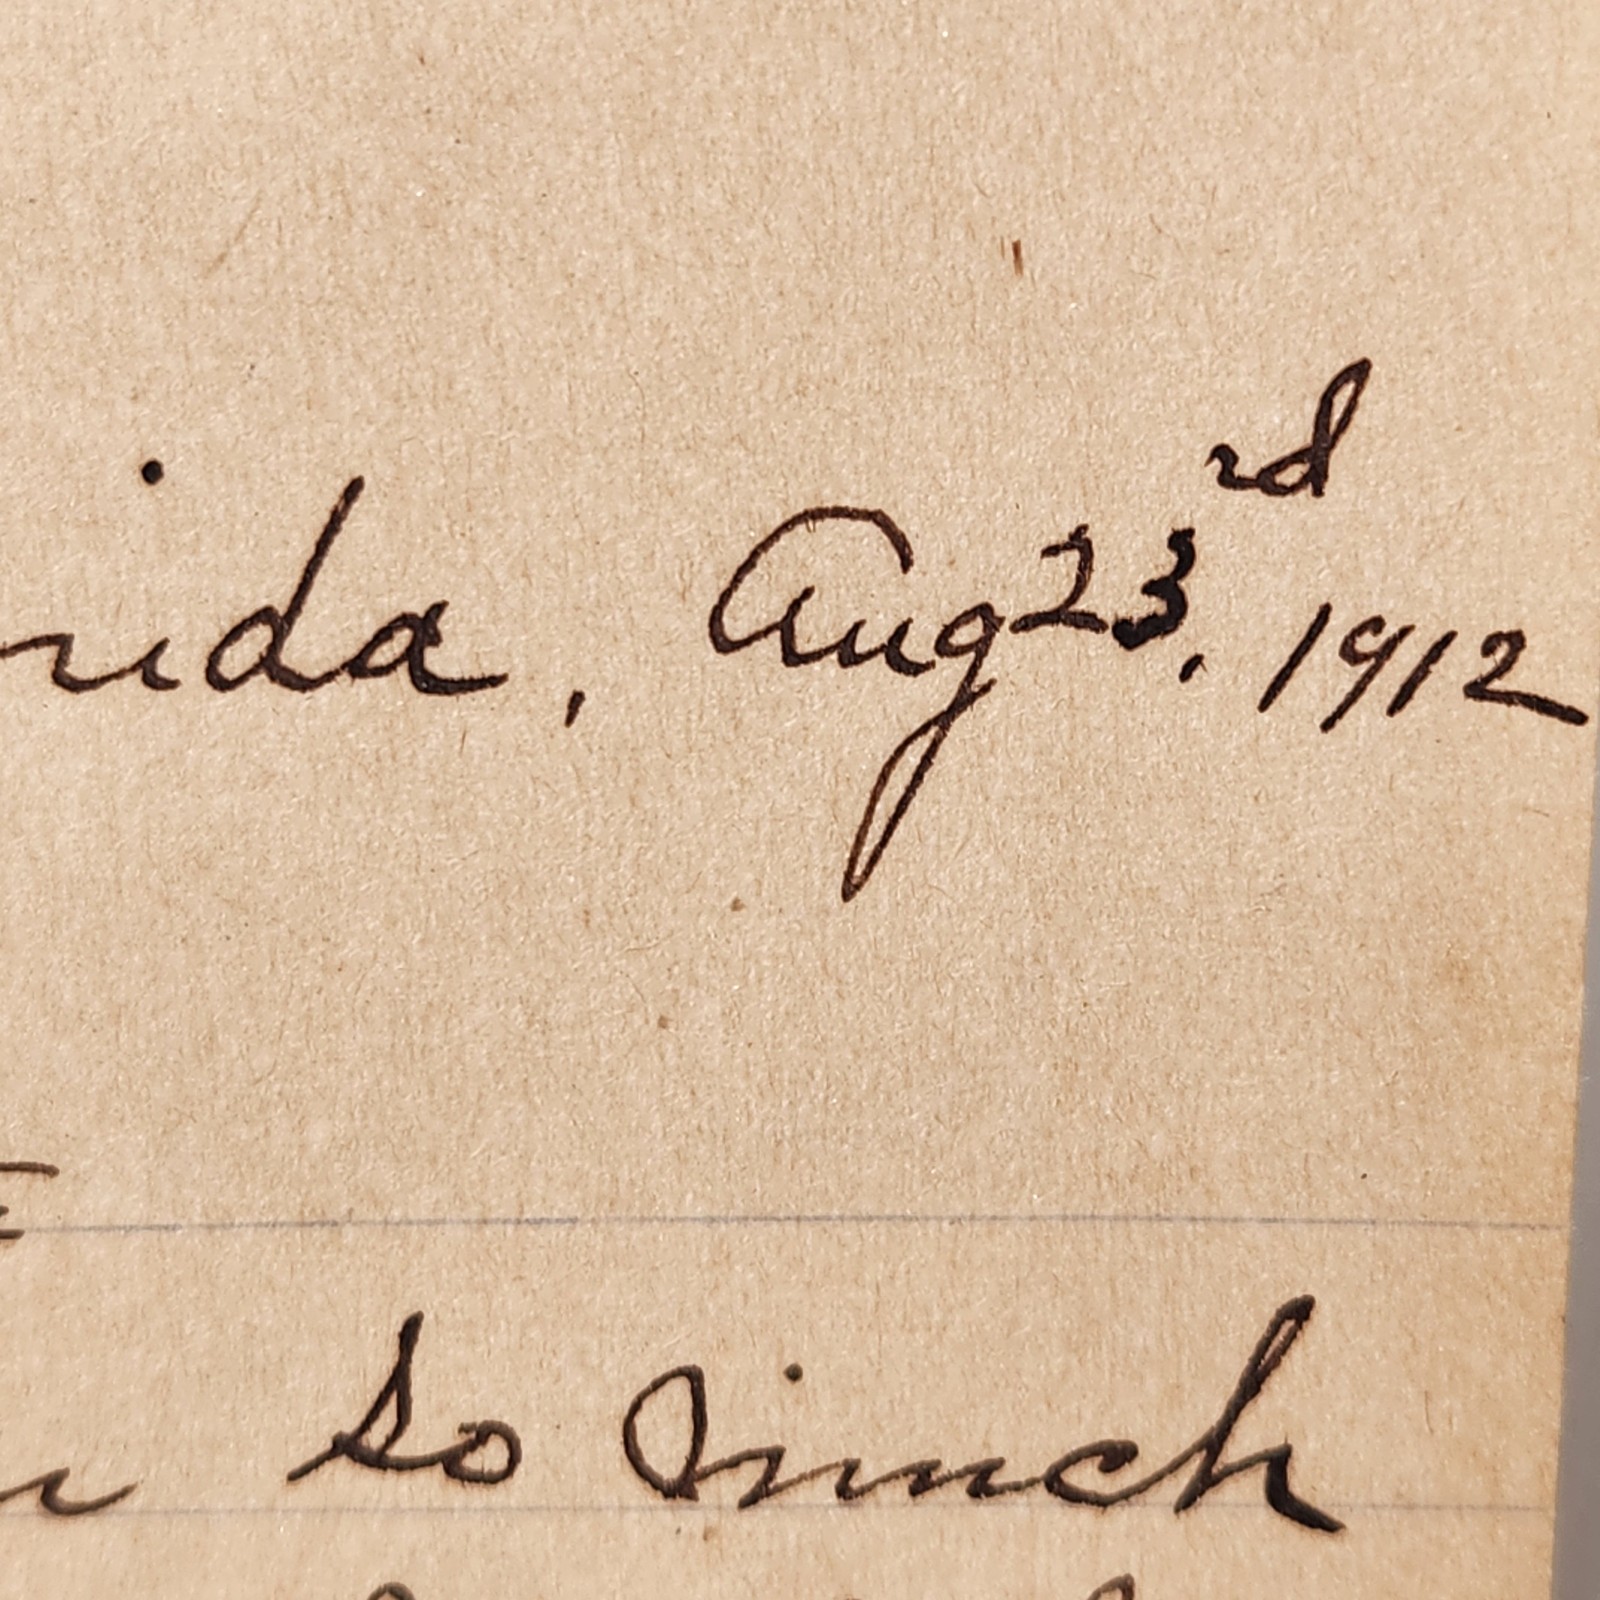 rida, Aug 23rd. 1912
so much